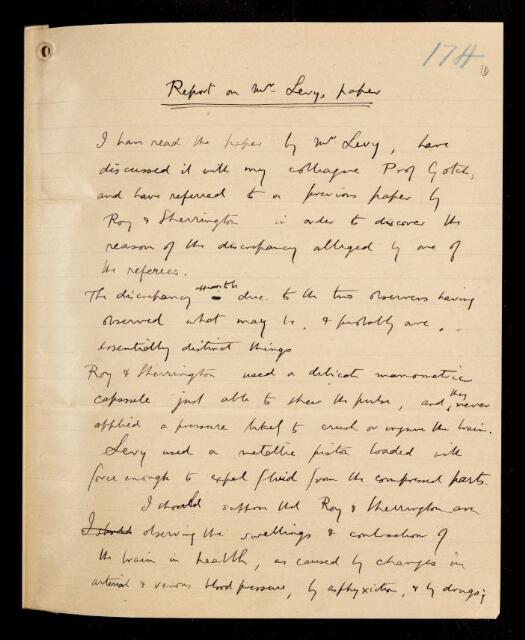 174
(1)
Report on Mr Levy's paper
I have read the paper by Mr Levy, have
discussed it with my colleague Prof Gotch,
and have referred to a previous paper by
Roy & Sherrington in order to discover the
reason of the discrepancy alleged by one of
the referees.
The discrepancy due to the two observers having
observed what may be, & probably are,
essentially distinct things
Roy & Sherrington used a delicate manometric
capsule just able to shew the pulse, and they never
applied a pressure likely to crush or injure the brain.
Levy used a metallic piston loaded with
force enough to expel fluid from the compressed parts.
I should suppose that Roy & Sherrington are
I should observing the swellings & contraction of
the brain in health, as caused by changes in
arterial & venous blood pressure, by asphyxiation, & by drugs;